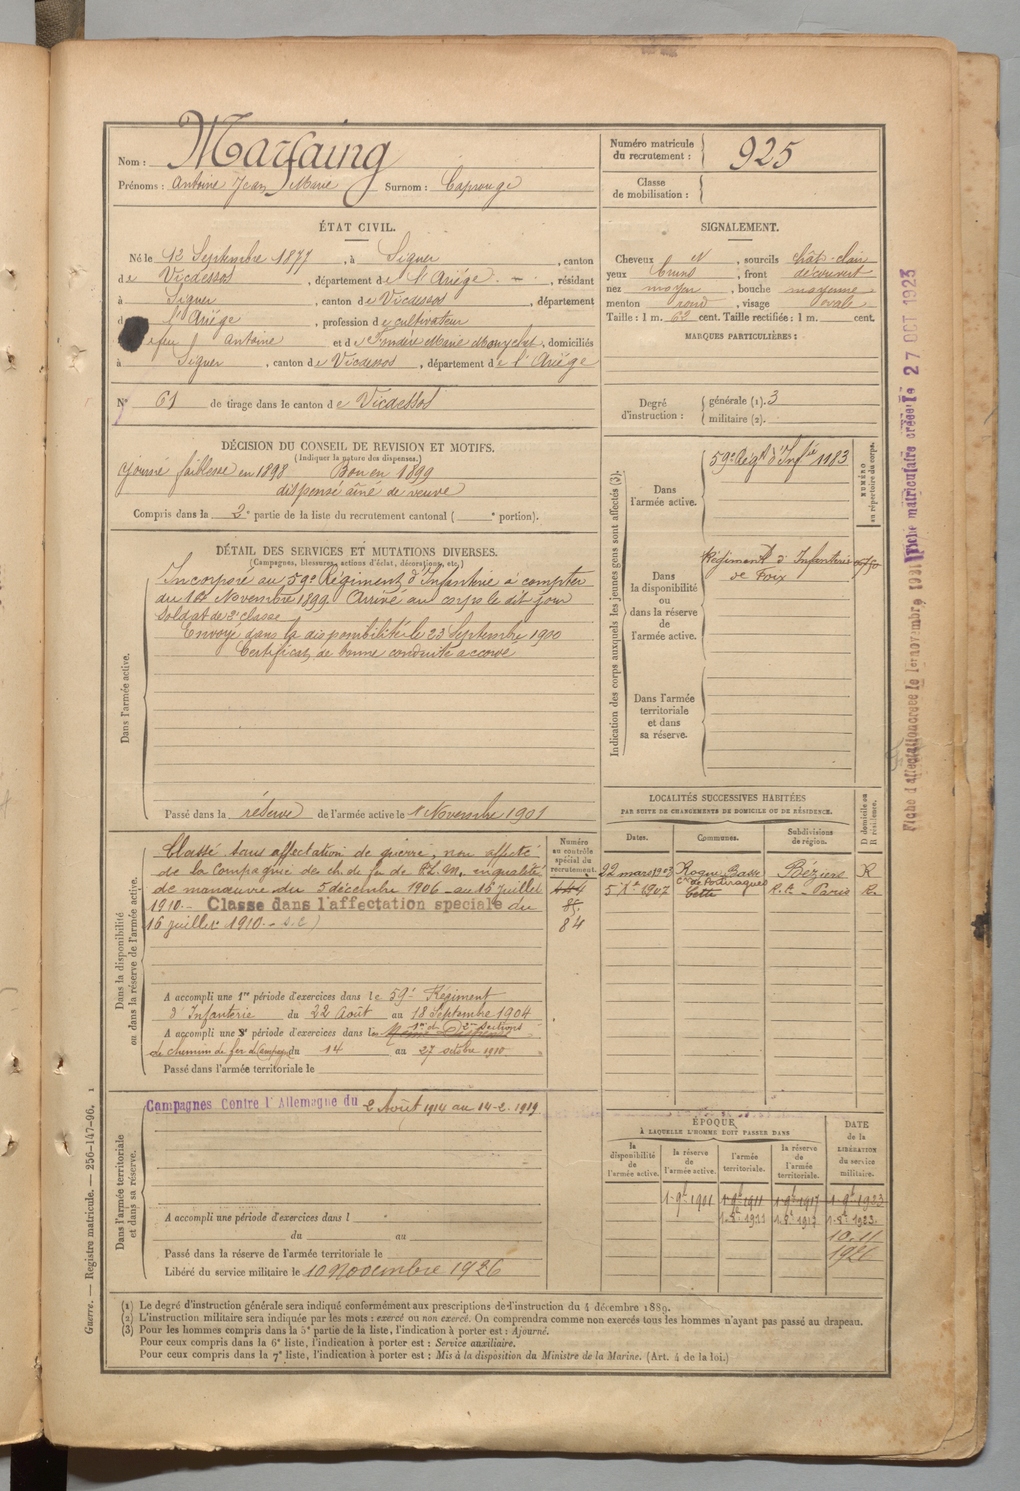 Nom : Marfaing
Prénoms : Antoine Jean Marie Surnom : Caprouge
Numéro matricule du recrutement : 925
Classe de mobilisation :
ÉTAT CIVIL.
Né le 12 Septembre 1877, à Siguer, canton
de Vicdessos, département de l'Ariége. —, résidant
à Siguer, canton de Vicdessos, département
d l'Ariége, profession de cultivateur
feu Antoine et de Marie, domiciliés
à Siguer, canton de Vicdessos, département de l'Ariége
N° 61 de tirage dans le canton de Vicdessos
SIGNALEMENT.
Cheveux et, sourcils chât-clair
yeux bruns, front découvert
nez moyen, bouche moyenne
menton rond, visage ovale
Taille : 1 m. 62 cent. Taille rectifiée : 1 m. cent.
MARQUES PARTICULIÈRES :
Degré d'instruction : générale (1). 3
militaire (2).
DÉCISION DU CONSEIL DE REVISION ET MOTIFS.
(Indiquer la nature des dispenses.)
Ajourné faiblesse en 1898 Bon en 1899
dispensé aîné de veuve
Compris dans la 2e partie de la liste du recrutement cantonal ( e portion).
DÉTAIL DES SERVICES ET MUTATIONS DIVERSES.
(Campagnes, blessures, actions d'éclat, décorations, etc.)
Dans l'armée active.
Incorporé au 59e Régiment d'Infanterie à compter
du 1er Novembre 1899. Arrivé au corps le dit jour
soldat de 2e classe
Envoyé dans la disponibilité le 23 Septembre 1900
Certificat de bonne conduite accordé
Passé dans la réserve de l'armée active le 1 Novembre 1901
Indication des corps auxquels les jeunes gens sont affectés (3).
NUMÉRO au répertoire du corps.
Dans l'armée active.
59e Régt d'Infie 1183
Dans la disponibilité ou dans la réserve de l'armée active.
Régiment d'Infanterie
de Foix
Dans l'armée territoriale et dans sa réserve.
Dans la disponibilité ou dans la réserve de l'armée active.
Classé sans affectation de guerre, non affecté
de la Compagnie des ch. de fer de P.L.M., en qualité
de manœuvre du 5 décembre 1906 au 15 juillet
1910. — Classe dans l'affectation speciale du
16 juillet 1910. —
Numéro au contrôle spécial du recrutement.
85.
84
A accompli une 1re période d'exercices dans le 59e Régiment
d'Infanterie du 22 Août au 18 Septembre 1904
A accompli une 2e période d'exercices dans les 1re et 2e sections
de chemin de fer de Campagne du 14 au 27 octobre 1910
Passé dans l'armée territoriale le
LOCALITÉS SUCCESSIVES HABITÉES
PAR SUITE DE CHANGEMENTS DE DOMICILE OU DE RÉSIDENCE.
Dates. Communes. Subdivisions de région. D domicile ou R résidence.
22 mars 1903 Roque Basse Cne de Portiragnes Béziers R
5 Xe 1907 Cette Paris R.
Dans l'armée territoriale et dans sa réserve.
Campagnes Contre l'Allemagne du 2 Août 1914 au 14-2-1919
A accompli une période d'exercices dans l
du au
Passé dans la réserve de l'armée territoriale le
Libéré du service militaire le 10 Novembre 1926
ÉPOQUE
À LAQUELLE L'HOMME DOIT PASSER DANS
la disponibilité de l'armée active. la réserve de l'armée active. l'armée territoriale. la réserve de l'armée territoriale.
DATE de la LIBÉRATION du service militaire.
1-9e 1901 1-9e 1911 1-9e 1917 1-9e 1923
1911 1917 1923
10.11
1926
Guerre. — Registre matricule. — 256-147-96.
Fiche d'affectation créée le 1er novembre 1911 Fiche matriculaire créée le 27 OCT 1923
(1) Le degré d'instruction générale sera indiqué conformément aux prescriptions de l'instruction du 4 décembre 1889.
(2) L'instruction militaire sera indiquée par les mots : exercé ou non exercé. On comprendra comme non exercés tous les hommes n'ayant pas passé au drapeau.
(3) Pour les hommes compris dans la 5e partie de la liste, l'indication à porter est : Ajourné.
Pour ceux compris dans la 6e liste, l'indication à porter est : Service auxiliaire.
Pour ceux compris dans la 7e liste, l'indication à porter est : Mis à la disposition du Ministre de la Marine. (Art. 4 de la loi.)